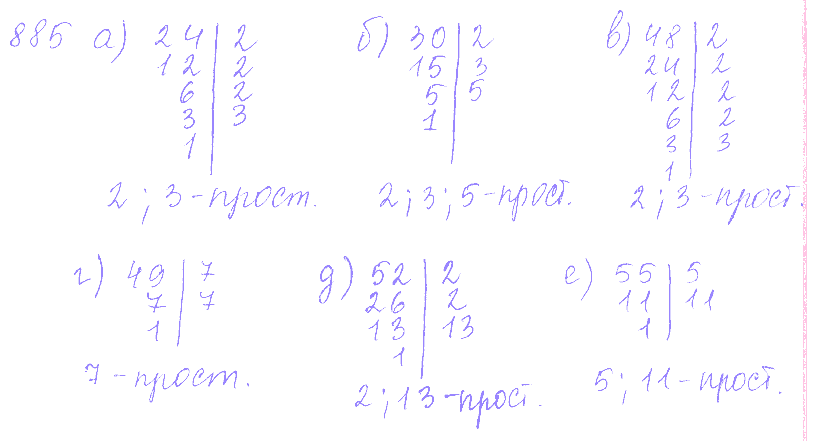 885 а) 24 | 2 б) 30 | 2 в) 48 | 2
12 | 2 15 | 3 24 | 2
6 | 2 5 | 5 12 | 2
3 | 3 1 | 6 | 2
1 | 3 | 3
1 |
2; 3 - прост. 2; 3; 5 - прост. 2; 3 - прост.
г) 49 | 7 д) 52 | 2 е) 55 | 5
7 | 7 26 | 2 11 | 11
1 | 13 | 13 1 |
1 |
7 - прост. 2; 13 - прост. 5; 11 - прост.